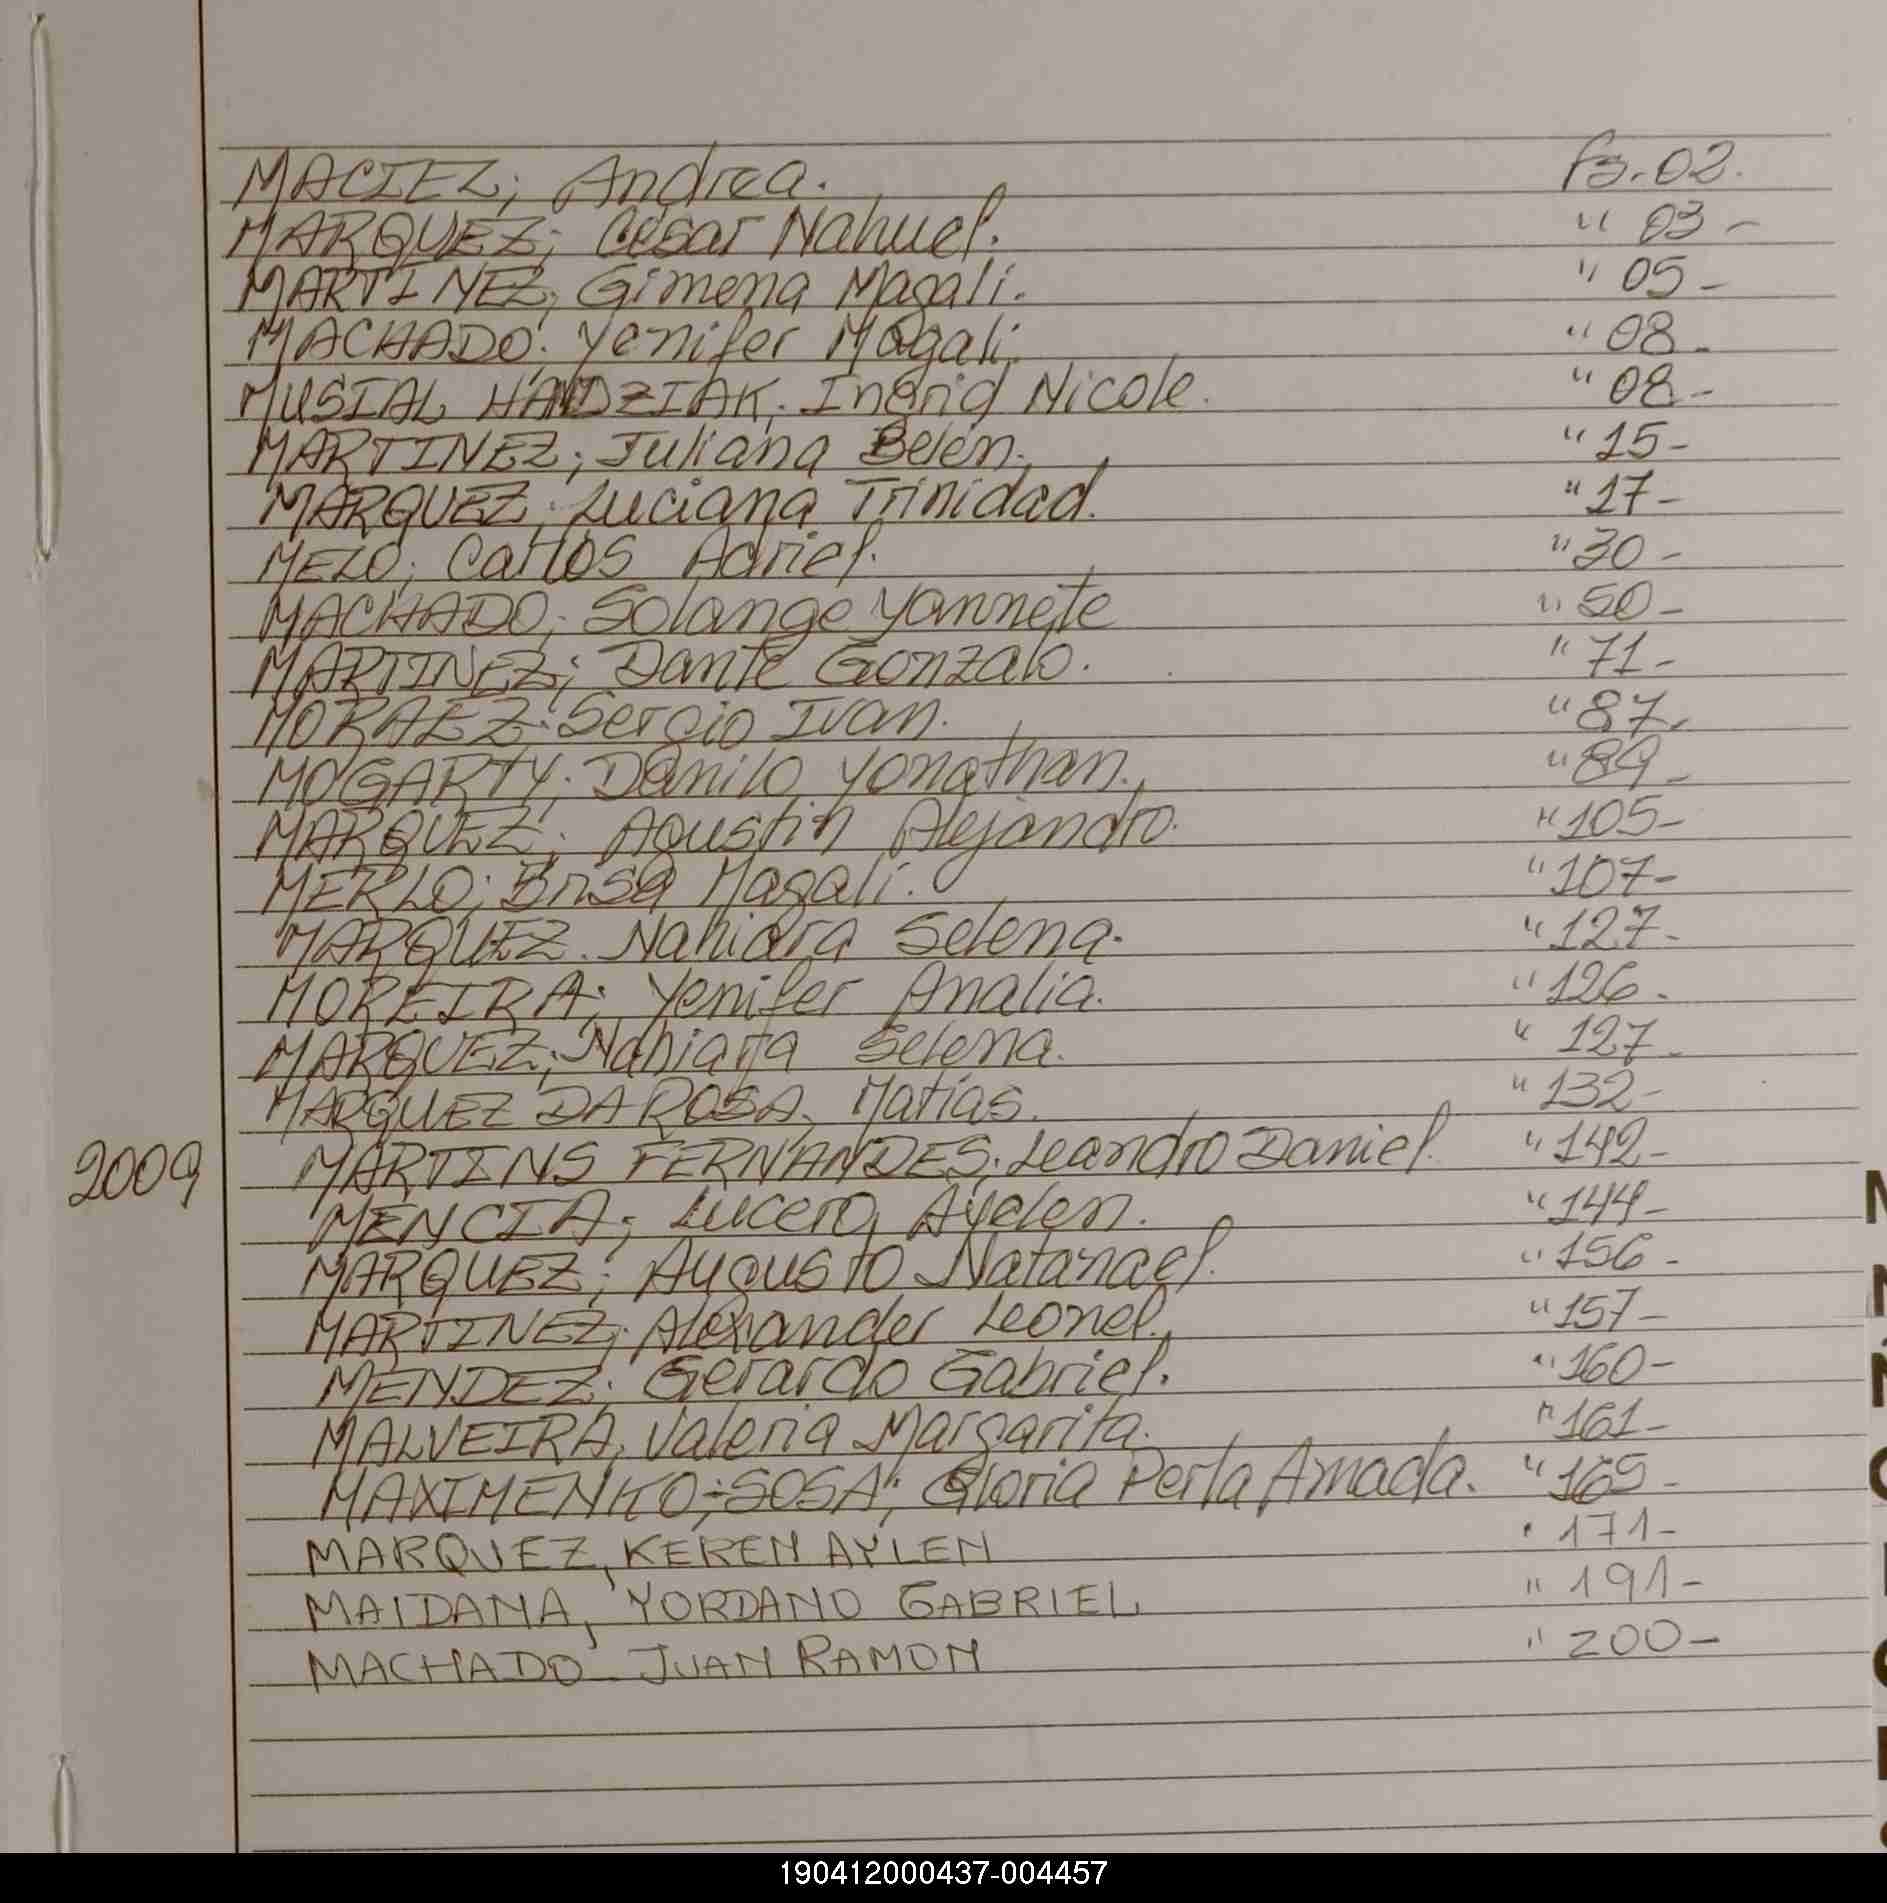 MACIEL; Andrea. fs. 02.
MARQUEZ; César Nahuel. " 03-
MARTINEZ; Gimena Magali. " 05-
MACHADO; Yenifer Magali. " 08-
MUSIAL HADZIAK. Ingrid Nicole. " 08-
MARTINEZ; Juliana Belén. " 15-
MARQUEZ; Luciana Trinidad. " 17-
MELO; Carlos Adriel. " 30-
MACHADO; Solange Yannete " 50-
MARTINEZ; Dante Gonzalo. " 71-
MORAEZ. Sergio Ivan. " 87.
MOGARTY; Danilo Yonathan. " 89-
MARQUEZ; Agustín Alejandro. " 105-
MERLO; Brisa Magali. " 107-
MARQUEZ. Nahiara Selena. " 127-
MOREIRA; Yenifer Analia. " 126.
MARQUEZ; Nahiara Selena. " 127-
MARQUEZ DA ROSA, Matías. " 132-
2009 MARTINS FERNANDES; Leandro Daniel. " 142-
MENCIA; Lucero Ayelen. " 144-
MARQUEZ; Augusto Natanael. " 156-
MARTINEZ; Alexander Leonel. " 157-
MENDEZ; Gerardo Gabriel. " 160-
MALVEIRA, Valeria Margarita. " 161-
MAXIMENKO; SOSA; Gloria Perla Amada. " 165-
MARQUEZ, KEREN AYLEN " 171-
MAIDANA, YORDANO GABRIEL " 191-
MACHADO JUAN RAMON " 200-
190412000437-004457